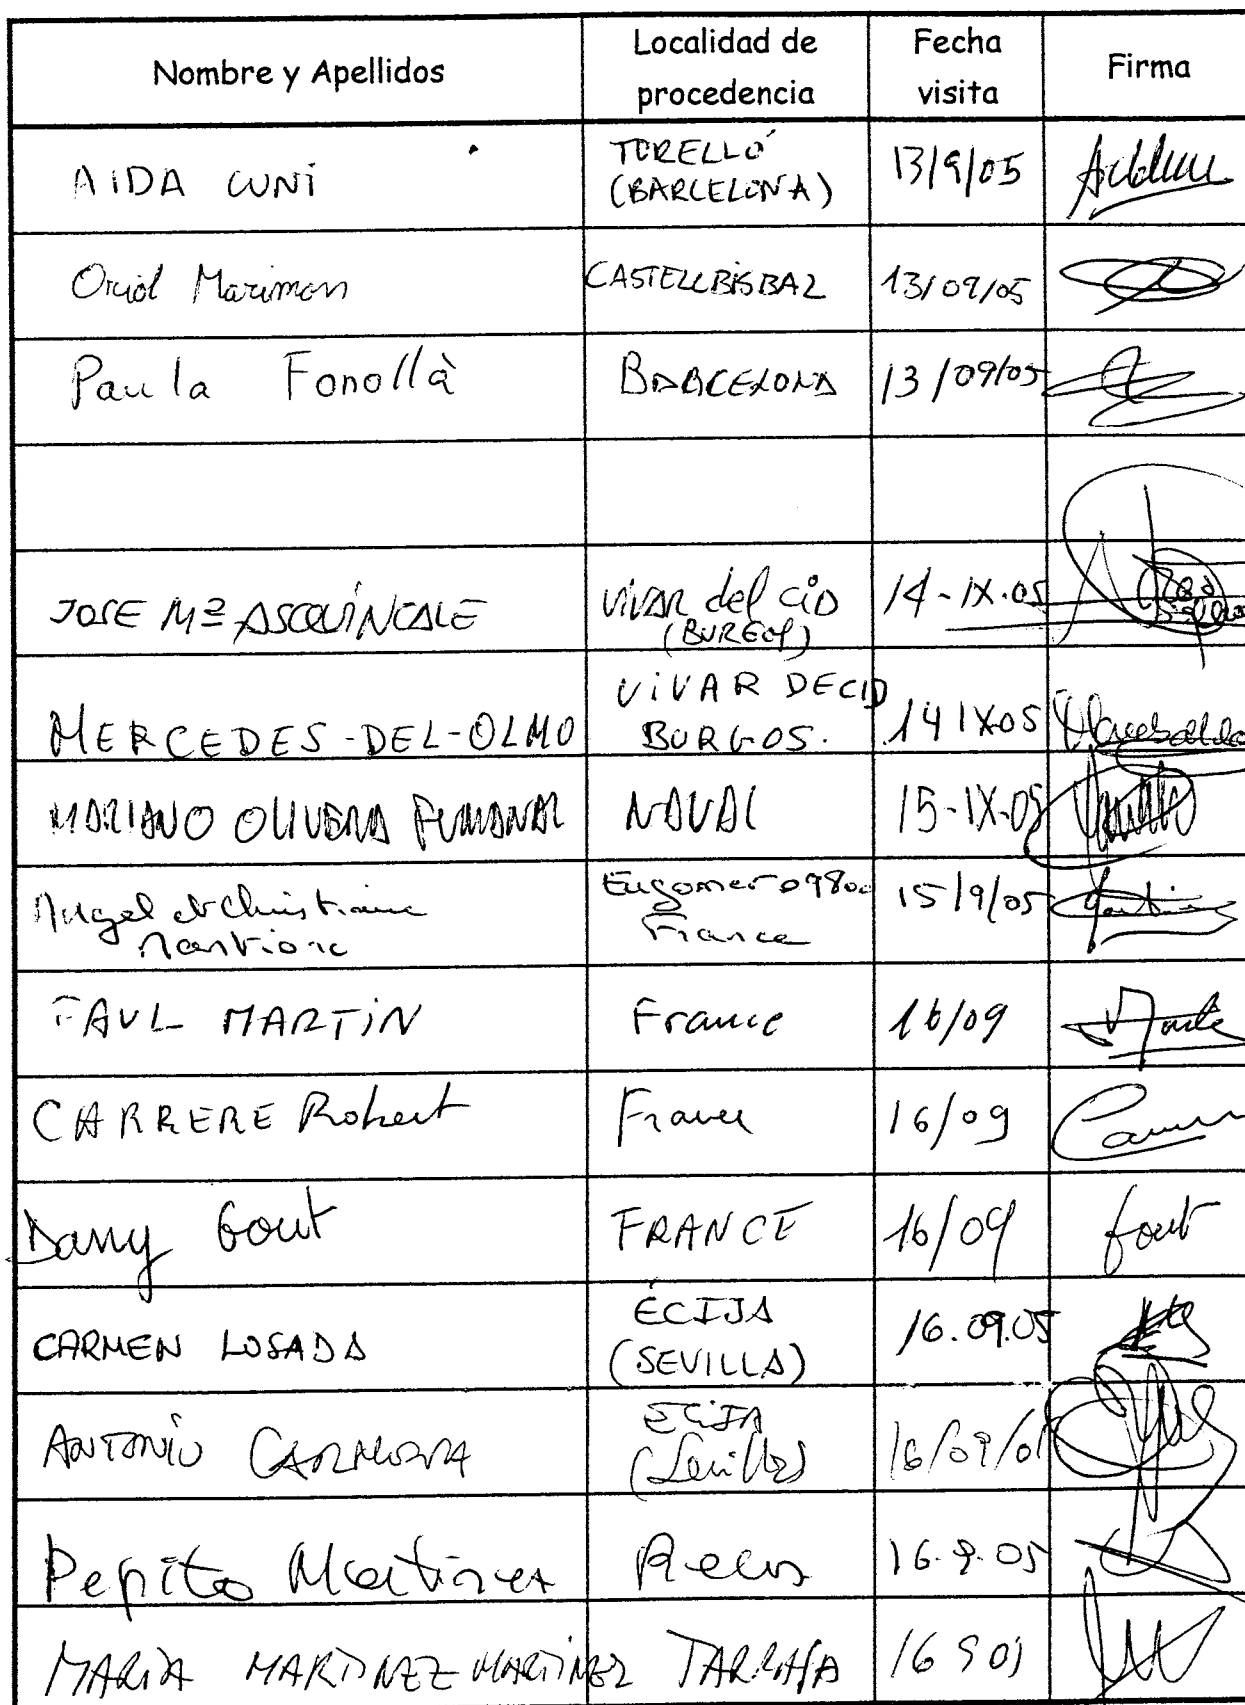 Nombre y Apellidos
Localidad de
procedencia
Fecha
visita
Firma
AIDA CUNÍ
TORELLÓ
(BARCELONA)
13/9/05
Oriol Marimon
CASTELLBISBAL
13/09/05
Paula Fonollà
BARCELONA
13/09/05
JOSE Mª
VIVAR del CID
(BURGOS)
14-IX-05
MERCEDES-DEL-OLMO
VIVAR DECID
BURGOS.
14 IX 05
MARIANO OLIVERA FUMANAL
NAVAL
15-IX-05
Angel et Christiane
09800
France
15/9/05
PAUL MARTIN
France
16/09
CARRERE Robert
France
16/09
Dany Gout
FRANCE
16/09
Gout
CARMEN LOSADA
ÉCIJA
(SEVILLA)
16.09.05
ANTONIO CARMONA
ECIJA
(Sevilla)
16/09/05
Pepita Martinez
Reus
16-9-05
MARIA MARTINEZ MARTINEZ
TARRASA
16 9 05